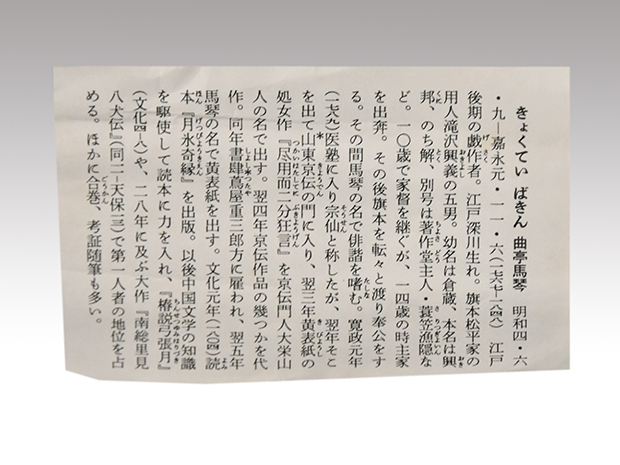 きょくてい ばきん 曲亭馬琴 明和四・六
・九―嘉永元・一一・六(一七六七―一八四八) 江戸
後期の戯作者。江戸深川生れ。旗本松平家の
用人滝沢興義の五男。幼名は倉蔵、本名は興
邦、のち解、別号は著作堂主人・蓑笠漁隠な
ど。一〇歳で家督を継ぐが、一四歳の時主家
を出奔。その後旗本を転々と渡り奉公をす
る。その間馬琴の名で俳諧を嗜む。寛政元年
(一七八九)医塾に入り宗仙と称したが、翌年そこ
を出て山東京伝の門に入り、翌三年黄表紙の
処女作『尽用而二分狂言』を京伝門人大栄山
人の名で出す。翌四年京伝作品の幾つかを代
作。同年書肆蔦屋重三郎方に雇われ、翌五年
馬琴の名で黄表紙を出す。文化元年(一八〇四)読
本『月氷奇縁』を出版。以後中国文学の知識
を駆使して読本に力を入れ、『椿説弓張月』
(文化四―八)や、二八年に及ぶ大作『南総里見
八犬伝』(同一一―天保一三)で第一人者の地位を占
める。ほかに合巻、考証随筆も多い。